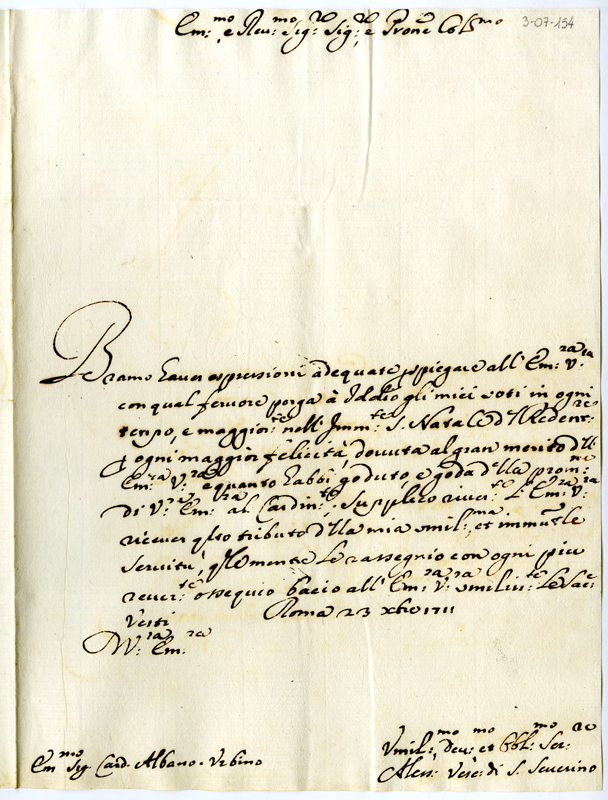 Em:mo e Rev:mo Sig:re Sig:re, e Prone Colmo
3-07-154
Bramo haver espressioni adequate p spiegare all' Em:za V:ra
con qual fervore porga à Iddio gli miei voti in ogni
tempo, e maggior:te nell' Imm:te S. Natale d'll Redent:re
p ogni maggior felicità, dovuta al gran merito d'll
Em:za V:ra e quanto habbi goduto, e goda d'lla prom:ne
di V:ra Em:za al Cardin:to; Supplico river:te L' Em:za V:ra
ricever qsto tributo d'lla mia umil:ma, et immut'le
servitù, q'lemente Le rassegnio con ogni piu
rever:te ossequio bacio all' Em:za V:ra umiliss:te Le Sac:e
Vesti Roma 23 xbre 1711
V:ra Em:za
Em:mo Sig. Card. Albano. Urbino
Umil:mo Dev:mo et Obbl:mo Ser:re
Aless: Vesc: di S. Severino